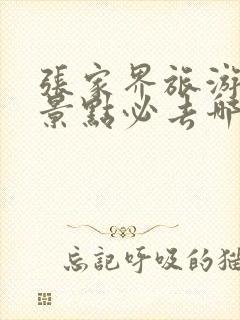 張家界旅游
景點必去哪
忘記呼吸的猫